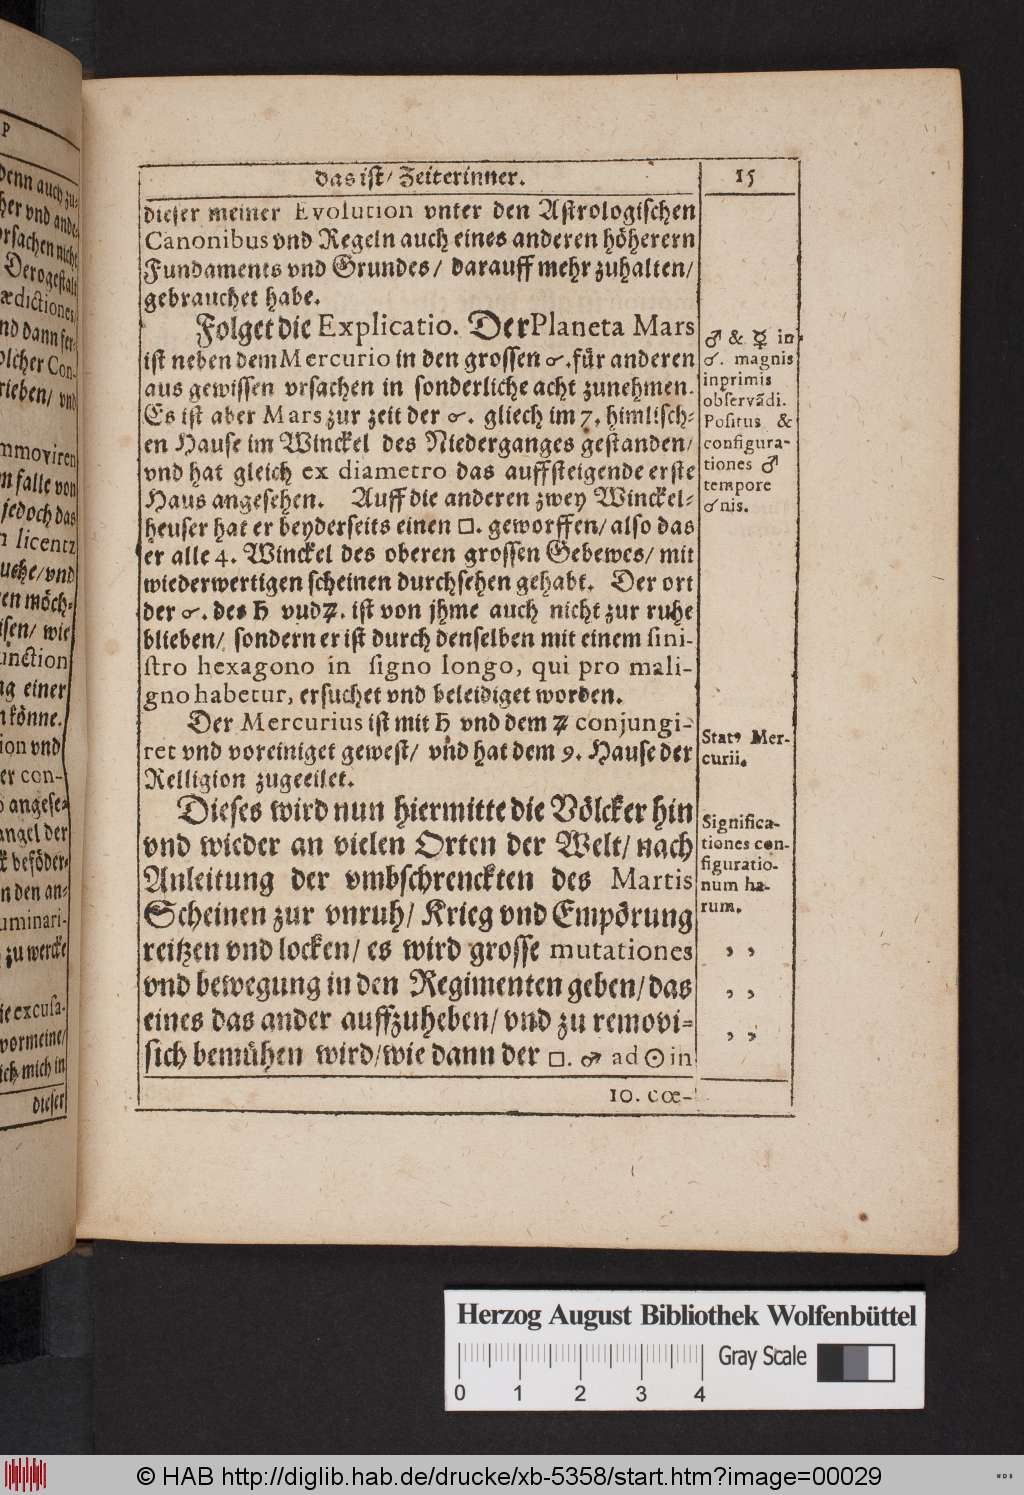 das ist/ Zeiterinner.
15
dieser meiner Evolution vnter den Astrologischen
Canonibus vnd Regeln auch eines anderen höherern
Fundaments vnd Grundes/ darauff mehr zuhalten/
gebrauchet habe.
Folget die Explicatio. Der Planeta Mars
ist neben dem Mercurio in den grossen ☌. für anderen
aus gewissen vrsachen in sonderliche acht zunehmen.
Es ist aber Mars zur zeit der ☌. gliech im 7. himlisch-
en Hause im Winckel des Niederganges gestanden/
vnd hat gleich ex diametro das auffsteigende erste
Haus angesehen. Auff die anderen zwey Winckel-
heuser hat er beyderseits einen □. geworffen/ also das
er alle 4. Winckel des oberen grossen Gebewes/ mit
wiederwertigen scheinen durchsehen gehabt. Der ort
der ☌. des ♄ vnd ♃. ist von jhme auch nicht zur ruhe
blieben/ sondern er ist durch denselben mit einem sini-
stro hexagono in signo longo, qui pro mali-
gno habetur, ersuchet vnd beleidiget worden.
Der Mercurius ist mit ♄ vnd dem ♃ conjungi-
ret vnd voreiniget gewest/ vnd hat dem 9. Hause der
Relligion zugeeilet.
Dieses wird nun hiermitte die Völcker hin
vnd wieder an vielen Orten der Welt/ nach
Anleitung der vmbschrenckten des Martis
Scheinen zur vnruh/ Krieg vnd Empörung
reitzen vnd locken/ es wird grosse mutationes
vnd bewegung in den Regimenten geben/ das
eines das ander auffzuheben/ vnd zu removi-
sich bemühen wird/ wie dann der □. ♂ ad ☉ in
10. cœ-
♂ & ☿ in
☌. magnis
inprimis
observãdi.
Positus &
configura-
tiones ♂
tempore
☌nis.
Stat9 Mer-
curii.
Significa-
tiones con-
figuratio-
num ha-
rum.
, ,
, ,
, ,
P
denn auch zu-
her vnd ande-
vrsachen nicht
Derogestalt
ædictiones
nd dann fer-
olcher Con-
rieben/ vnd
mmoviren
n falle von
jedoch das
n licentz
uche/ vnd
en möch-
isen/ wie
unction
ng einer
n könne.
ion vnd
er con-
o angese-
angel der
k beföder-
n den an-
uminari-
zu wercke
ie excusa-
vormeine/
ich mich in
dieser
Herzog August Bibliothek Wolfenbüttel
Gray Scale
0 1 2 3 4
© HAB http://diglib.hab.de/drucke/xb-5358/start.htm?image=00029